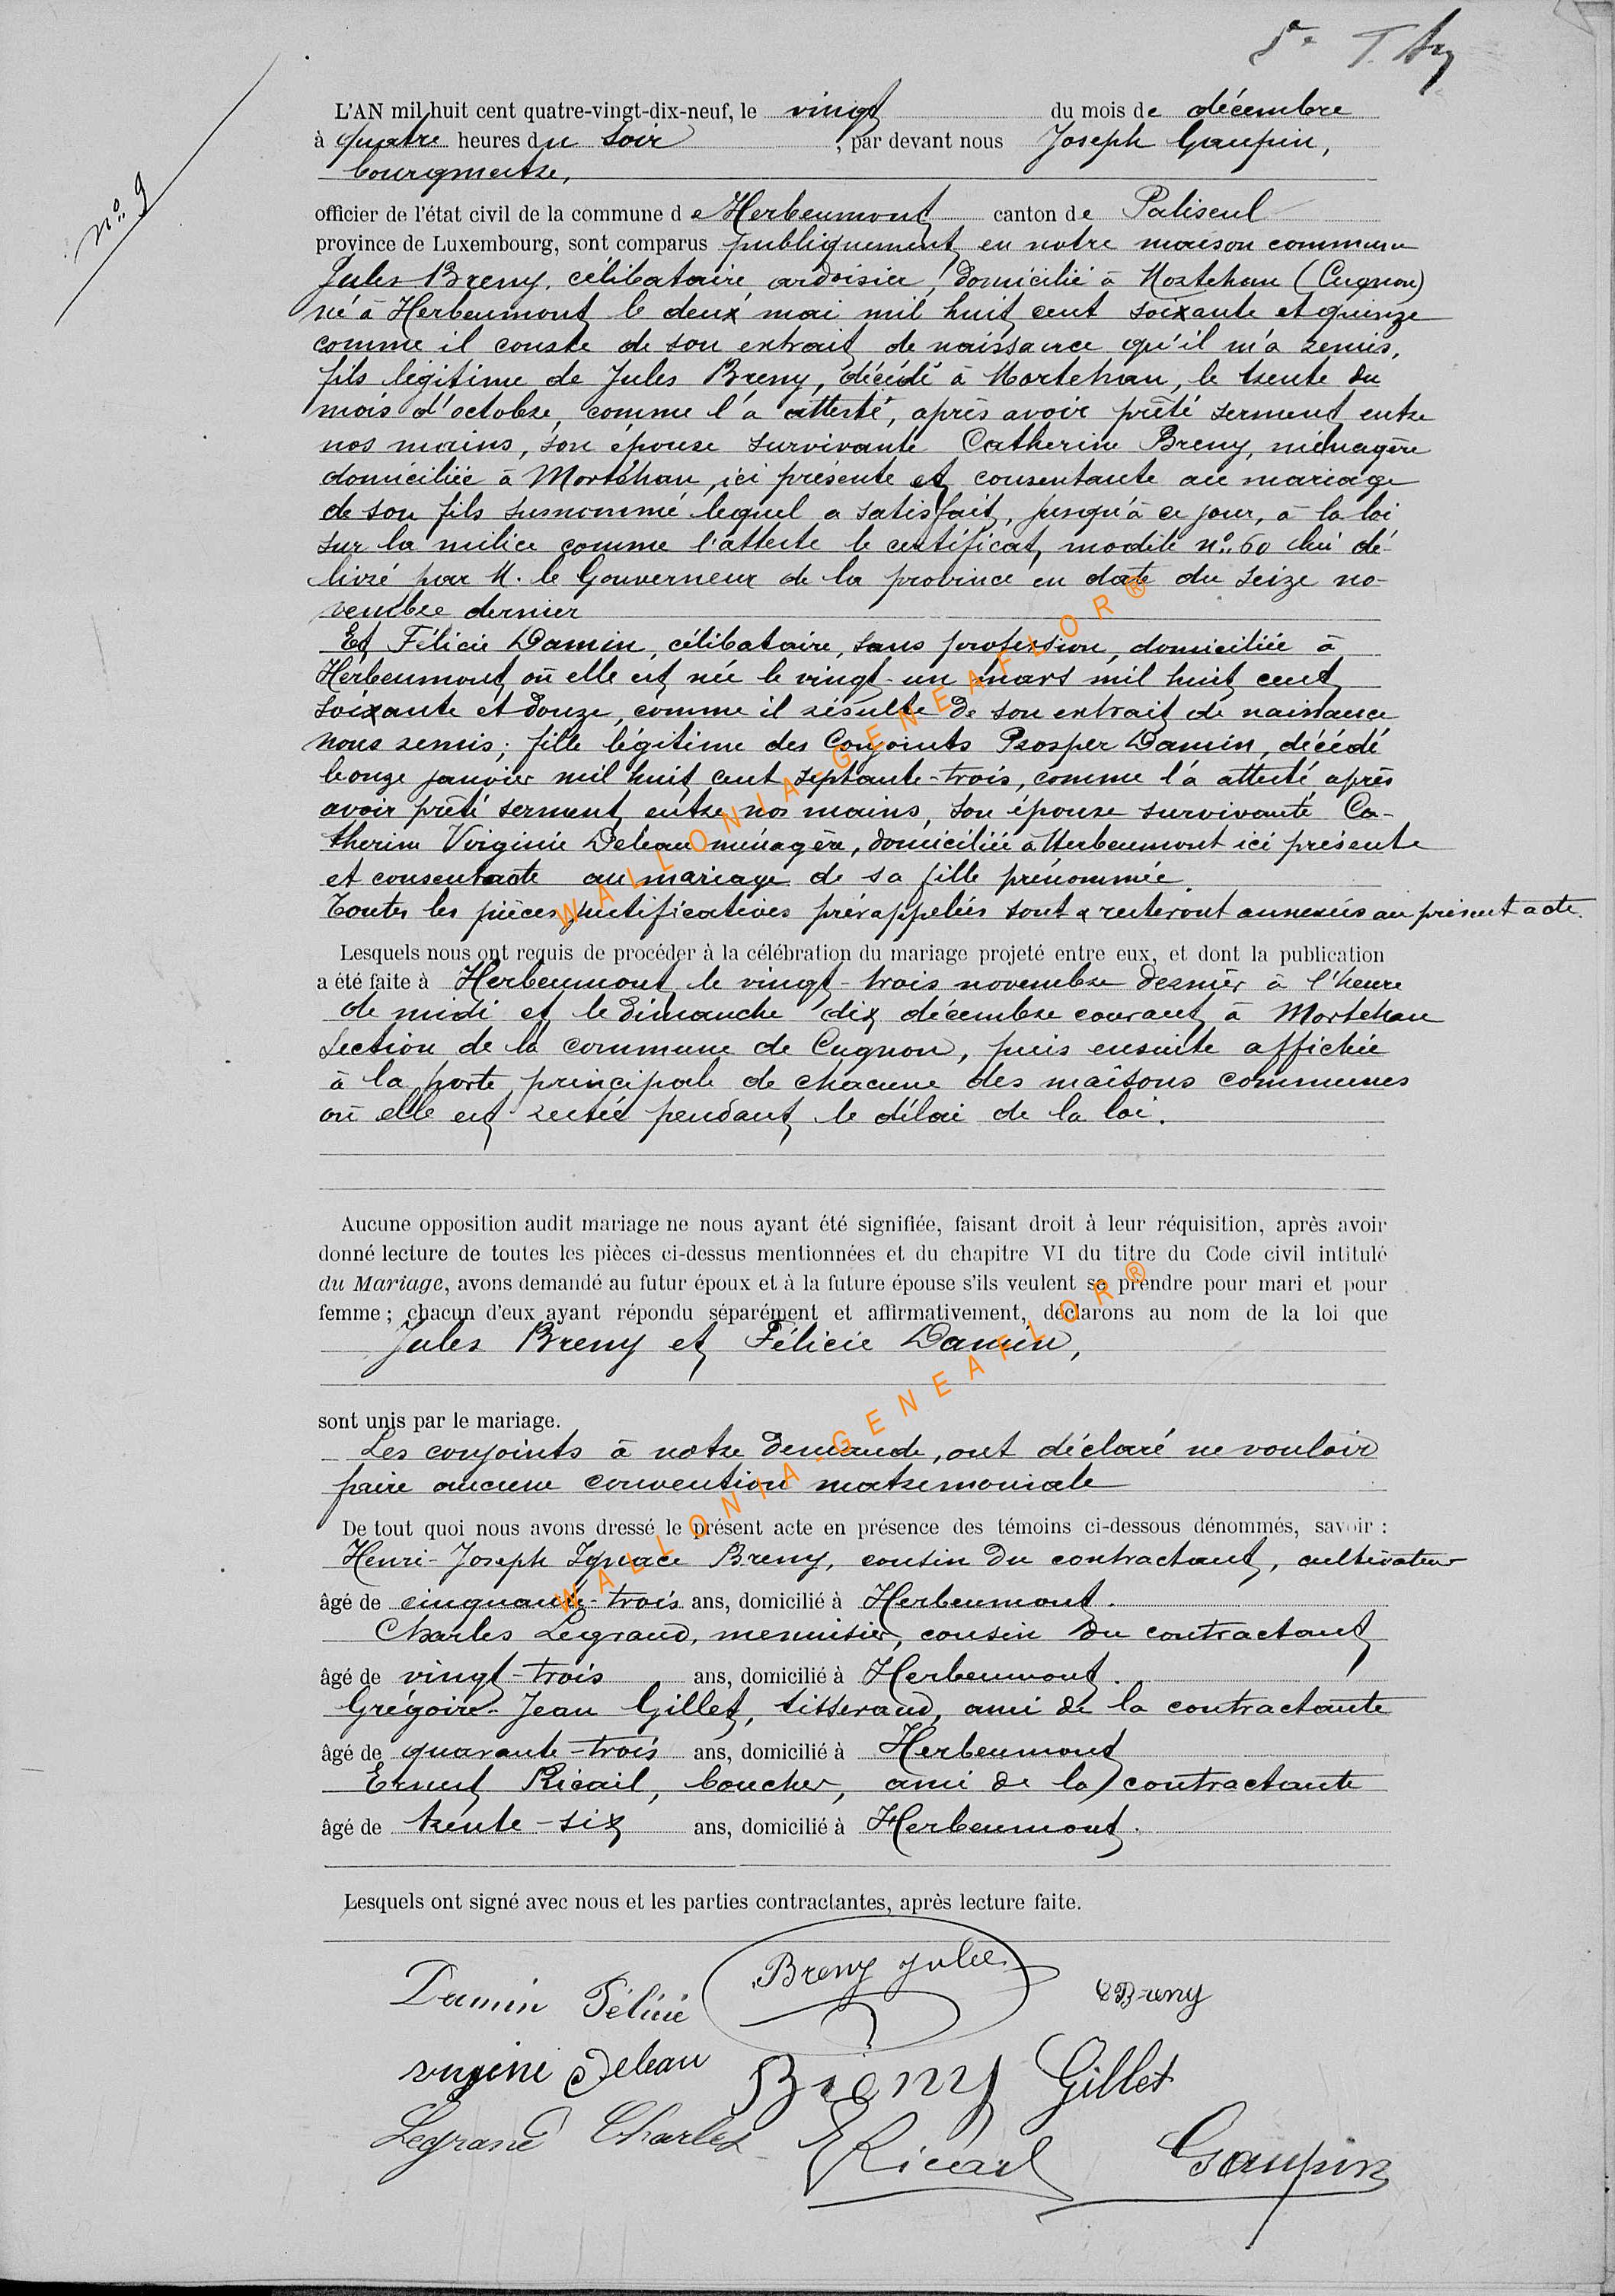 nº 9
L'AN mil huit cent quatre-vingt-dix-neuf, le vingt du mois de décembre
à quatre heures du soir, par devant nous Joseph Gaupin,
bourgmestre,
officier de l'état civil de la commune de Herbeumont canton de Paliseul
province de Luxembourg, sont comparus publiquement en notre maison commune
Jules Breny, célibataire, ardoisier, domicilié à Mortehan (Cugnon)
né à Herbeumont le deux mai mil huit cent soixante et quinze
comme il conste de son extrait de naissance qu'il m'a remis,
fils légitime de Jules Breny, décédé à Mortehan, le trente du
mois d'octobre, comme l'a attesté, après avoir prêté serment entre
nos mains, son épouse survivante Catherine Breny, ménagère
domiciliée à Mortehan, ici présente et consentante au mariage
de son fils susnommé lequel a satisfait, jusqu'à ce jour, à la loi
sur la milice comme l'atteste le certificat, modèle nº 60 lui dé-
livré par M. le Gouverneur de la province en date du seize no-
vembre dernier
Et Félicie Damin, célibataire, sans profession, domiciliée à
Herbeumont où elle est née le vingt-un mars mil huit cent
soixante et douze, comme il résulte de son extrait de naissance
nous remis; fille légitime des Conjoints Prosper Damin, décédé
le onze janvier mil huit cent septante-trois, comme l'a attesté après
avoir prêté serment entre nos mains, son épouse survivante Ca-
therine Virginie Deleau ménagère, domiciliée à Herbeumont ici présente
et consentante au mariage de sa fille prénommée.
Toutes les pièces justificatives prérappelées sont & resteront annexées au présent acte.
Lesquels nous ont requis de procéder à la célébration du mariage projeté entre eux, et dont la publication
a été faite à Herbeumont le vingt-trois novembre dernier à l'heure
de midi et le dimanche dix décembre courant à Mortehan
section de la commune de Cugnon, puis ensuite affichée
à la porte principale de chacune des maisons communes
où elle est restée pendant le délai de la loi.
Aucune opposition audit mariage ne nous ayant été signifiée, faisant droit à leur réquisition, après avoir
donné lecture de toutes les pièces ci-dessus mentionnées et du chapitre VI du titre du Code civil intitulé
du Mariage, avons demandé au futur époux et à la future épouse s'ils veulent se prendre pour mari et pour
femme; chacun d'eux ayant répondu séparément et affirmativement, déclarons au nom de la loi que
Jules Breny et Félicie Damin,
sont unis par le mariage.
Les conjoints à notre demande, ont déclaré ne vouloir
faire aucune convention matrimoniale
De tout quoi nous avons dressé le présent acte en présence des témoins ci-dessous dénommés, savoir :
Henri-Joseph Ignace Breny, cousin du contractant, cultivateur
âgé de cinquante-trois ans, domicilié à Herbeumont.
Charles Legrand, menuisier, cousin du contractant
âgé de vingt-trois ans, domicilié à Herbeumont.
Grégoire-Jean Gillet, tisserand, ami de la contractante
âgé de quarante-trois ans, domicilié à Herbeumont
Ernest Ricail, boucher, ami de la contractante
âgé de trente-six ans, domicilié à Herbeumont.
Lesquels ont signé avec nous et les parties contractantes, après lecture faite.
Damin Félicie Breny Jules C Breny
virginie Deleau Breny Gillet
Legrand Charles E Ricail Gaupin
WALLONIA-GENEAFLOR®
WALLONIA-GENEAFLOR®